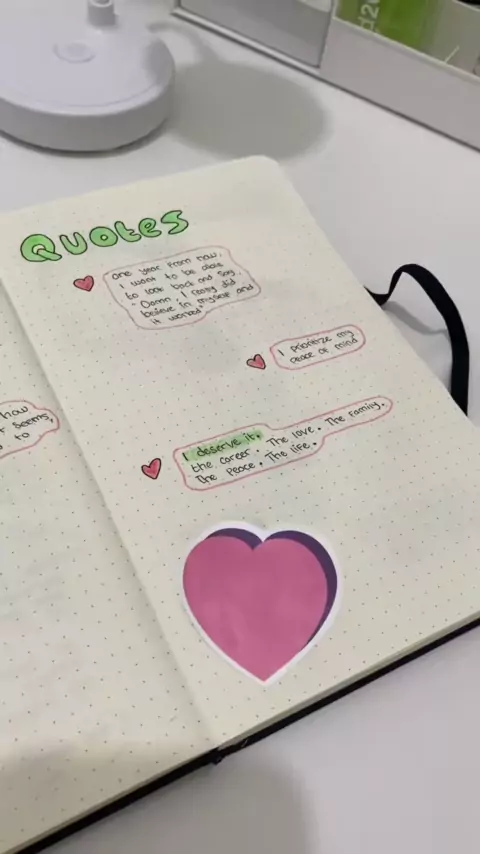 QUOTES
One year from now,
I want to be able
to look back and say,
"Damn, I really did
believe in myself and
it worked"
I prioritize my
peace of mind
how
seems,
to
I deserve it.
the career. The love. The family.
The peace. The life.